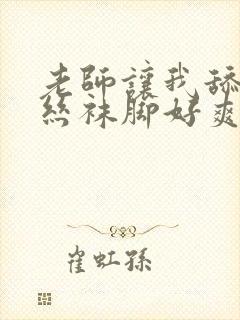 老師讓我舔
絲袜脚好爽
崔虹孫